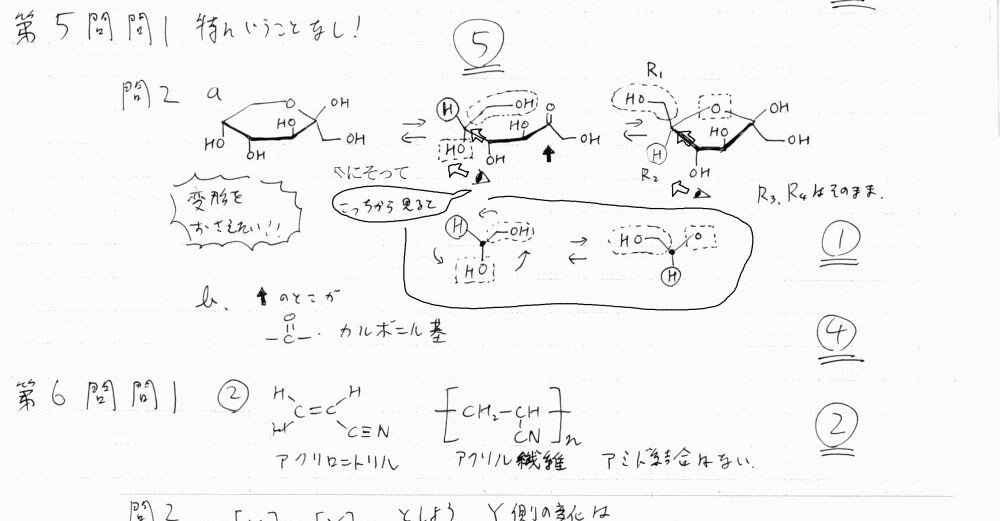 第5問 問1 特にいうことなし! ⑤
問2 a
OH O HO OH HO OH
H OH O HO OH HO OH
R₁ HO O OH HO OH H R₂ OH
変形を
おさえたい!!
にそって
こっちから見ると
R₃, R₄はそのまま.
①
H OH HO
HO O H
b. ↑のとこが
O
-C-. カルボニル基
④
第6問 問1 ② H H C=C H C≡N
[CH₂-CH CN]n
②
アクリロニトリル アクリル繊維 アミド結合はない.
問2 としよう Y側の変化は